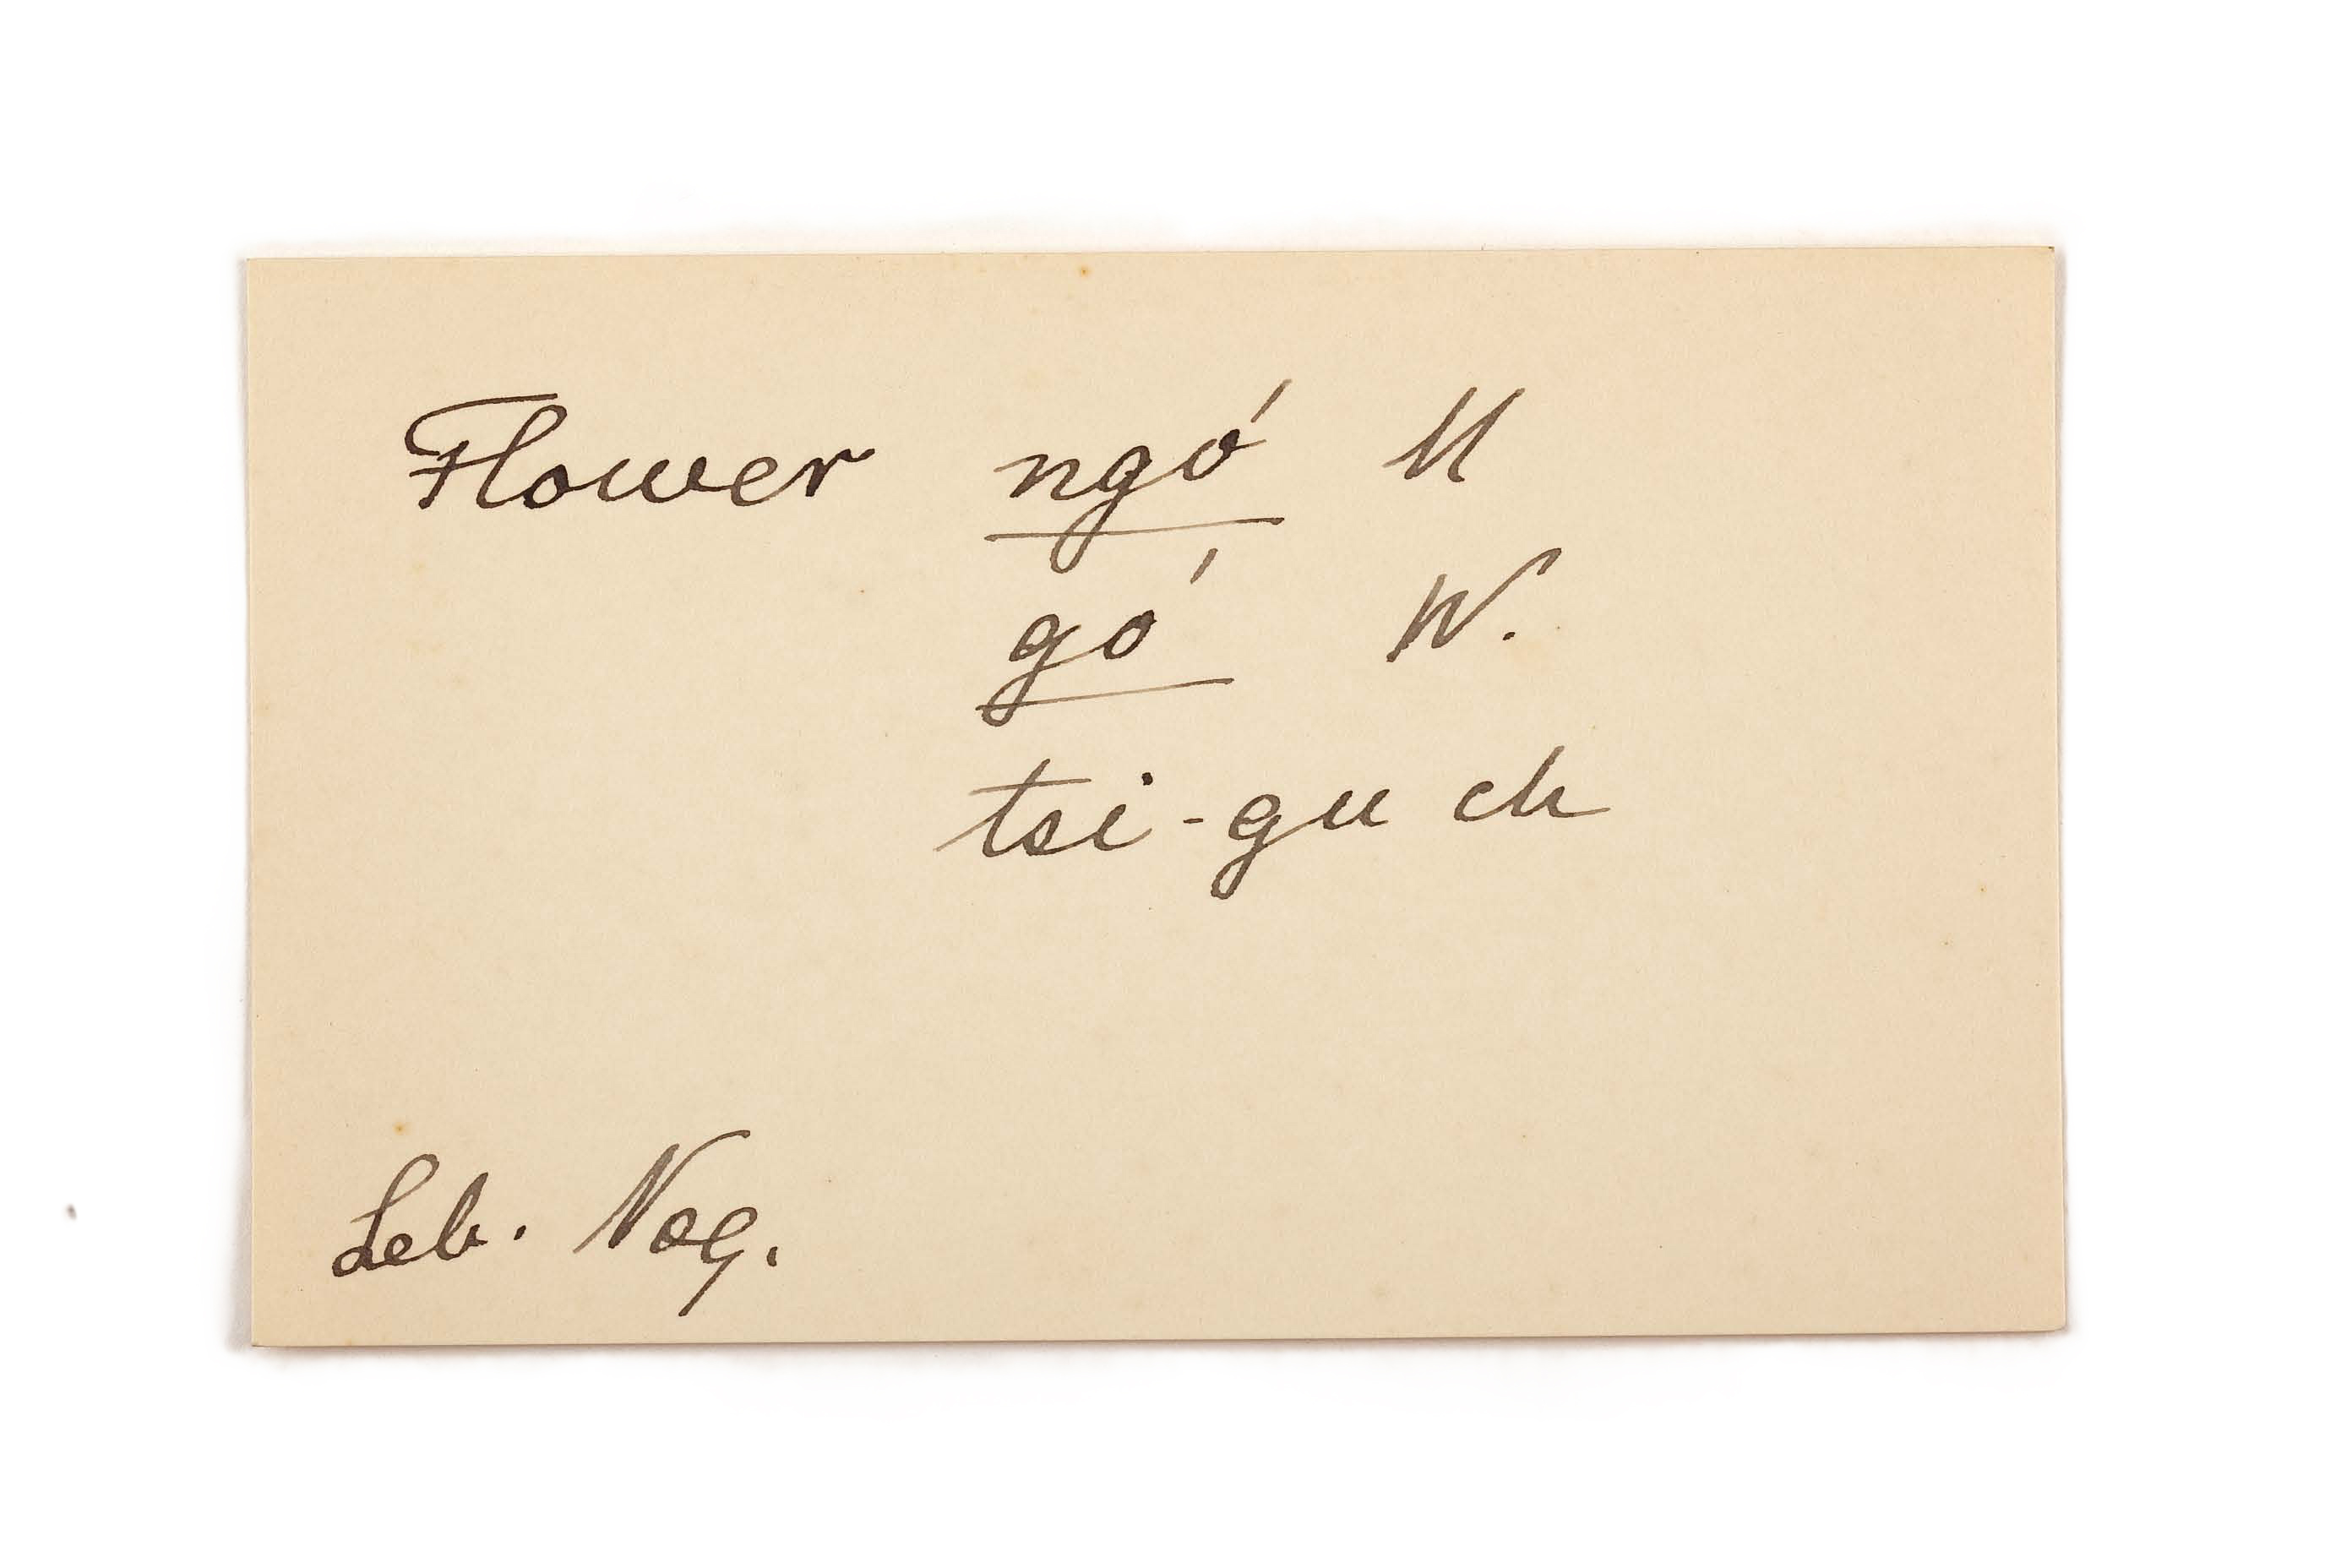 Flower ngó' M
gó' W.
tsi-gu ch
Leb. Nog.